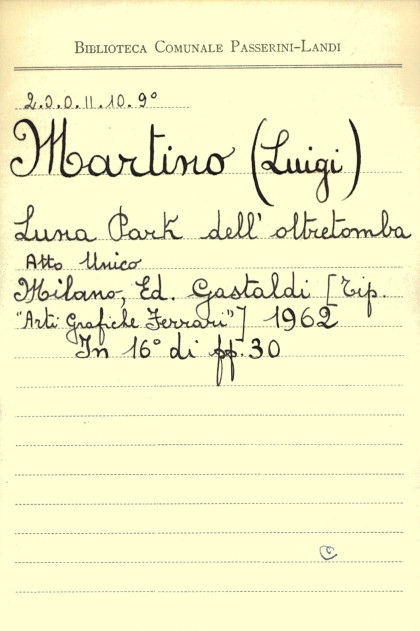 BIBLIOTECA COMUNALE PASSERINI-LANDI
2.0.0.II.10.9°
Martino (Luigi)
Luna Park dell' oltretomba
Atto Unico
Milano, Ed. Gastaldi [Tip.
"Arti Grafiche Ferrari"] 1962
In 16° di pp. 30